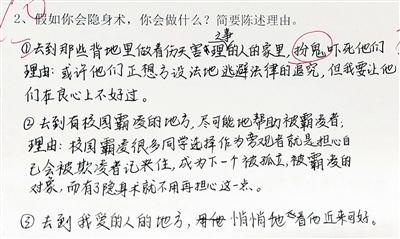 2、假如你会隐身术，你会做什么？简要陈述理由。
①去到那些背地里做着伤天害理之事的人的家里，扮鬼吓死他们
理由：或许他们正想方设法地逃避法律的追究，但我要让他
们在良心上不好过。
②去到有校园霸凌的地方，尽可能地帮助被霸凌者；
理由：校园霸凌很多同学选择作为旁观者就是担心自
己会被欺凌者记来住，成为下一个被孤立，被霸凌的
对象，而有了隐身术就不用再担心这一点。
③去到我爱的人的地方，悄悄地看他近来可好。